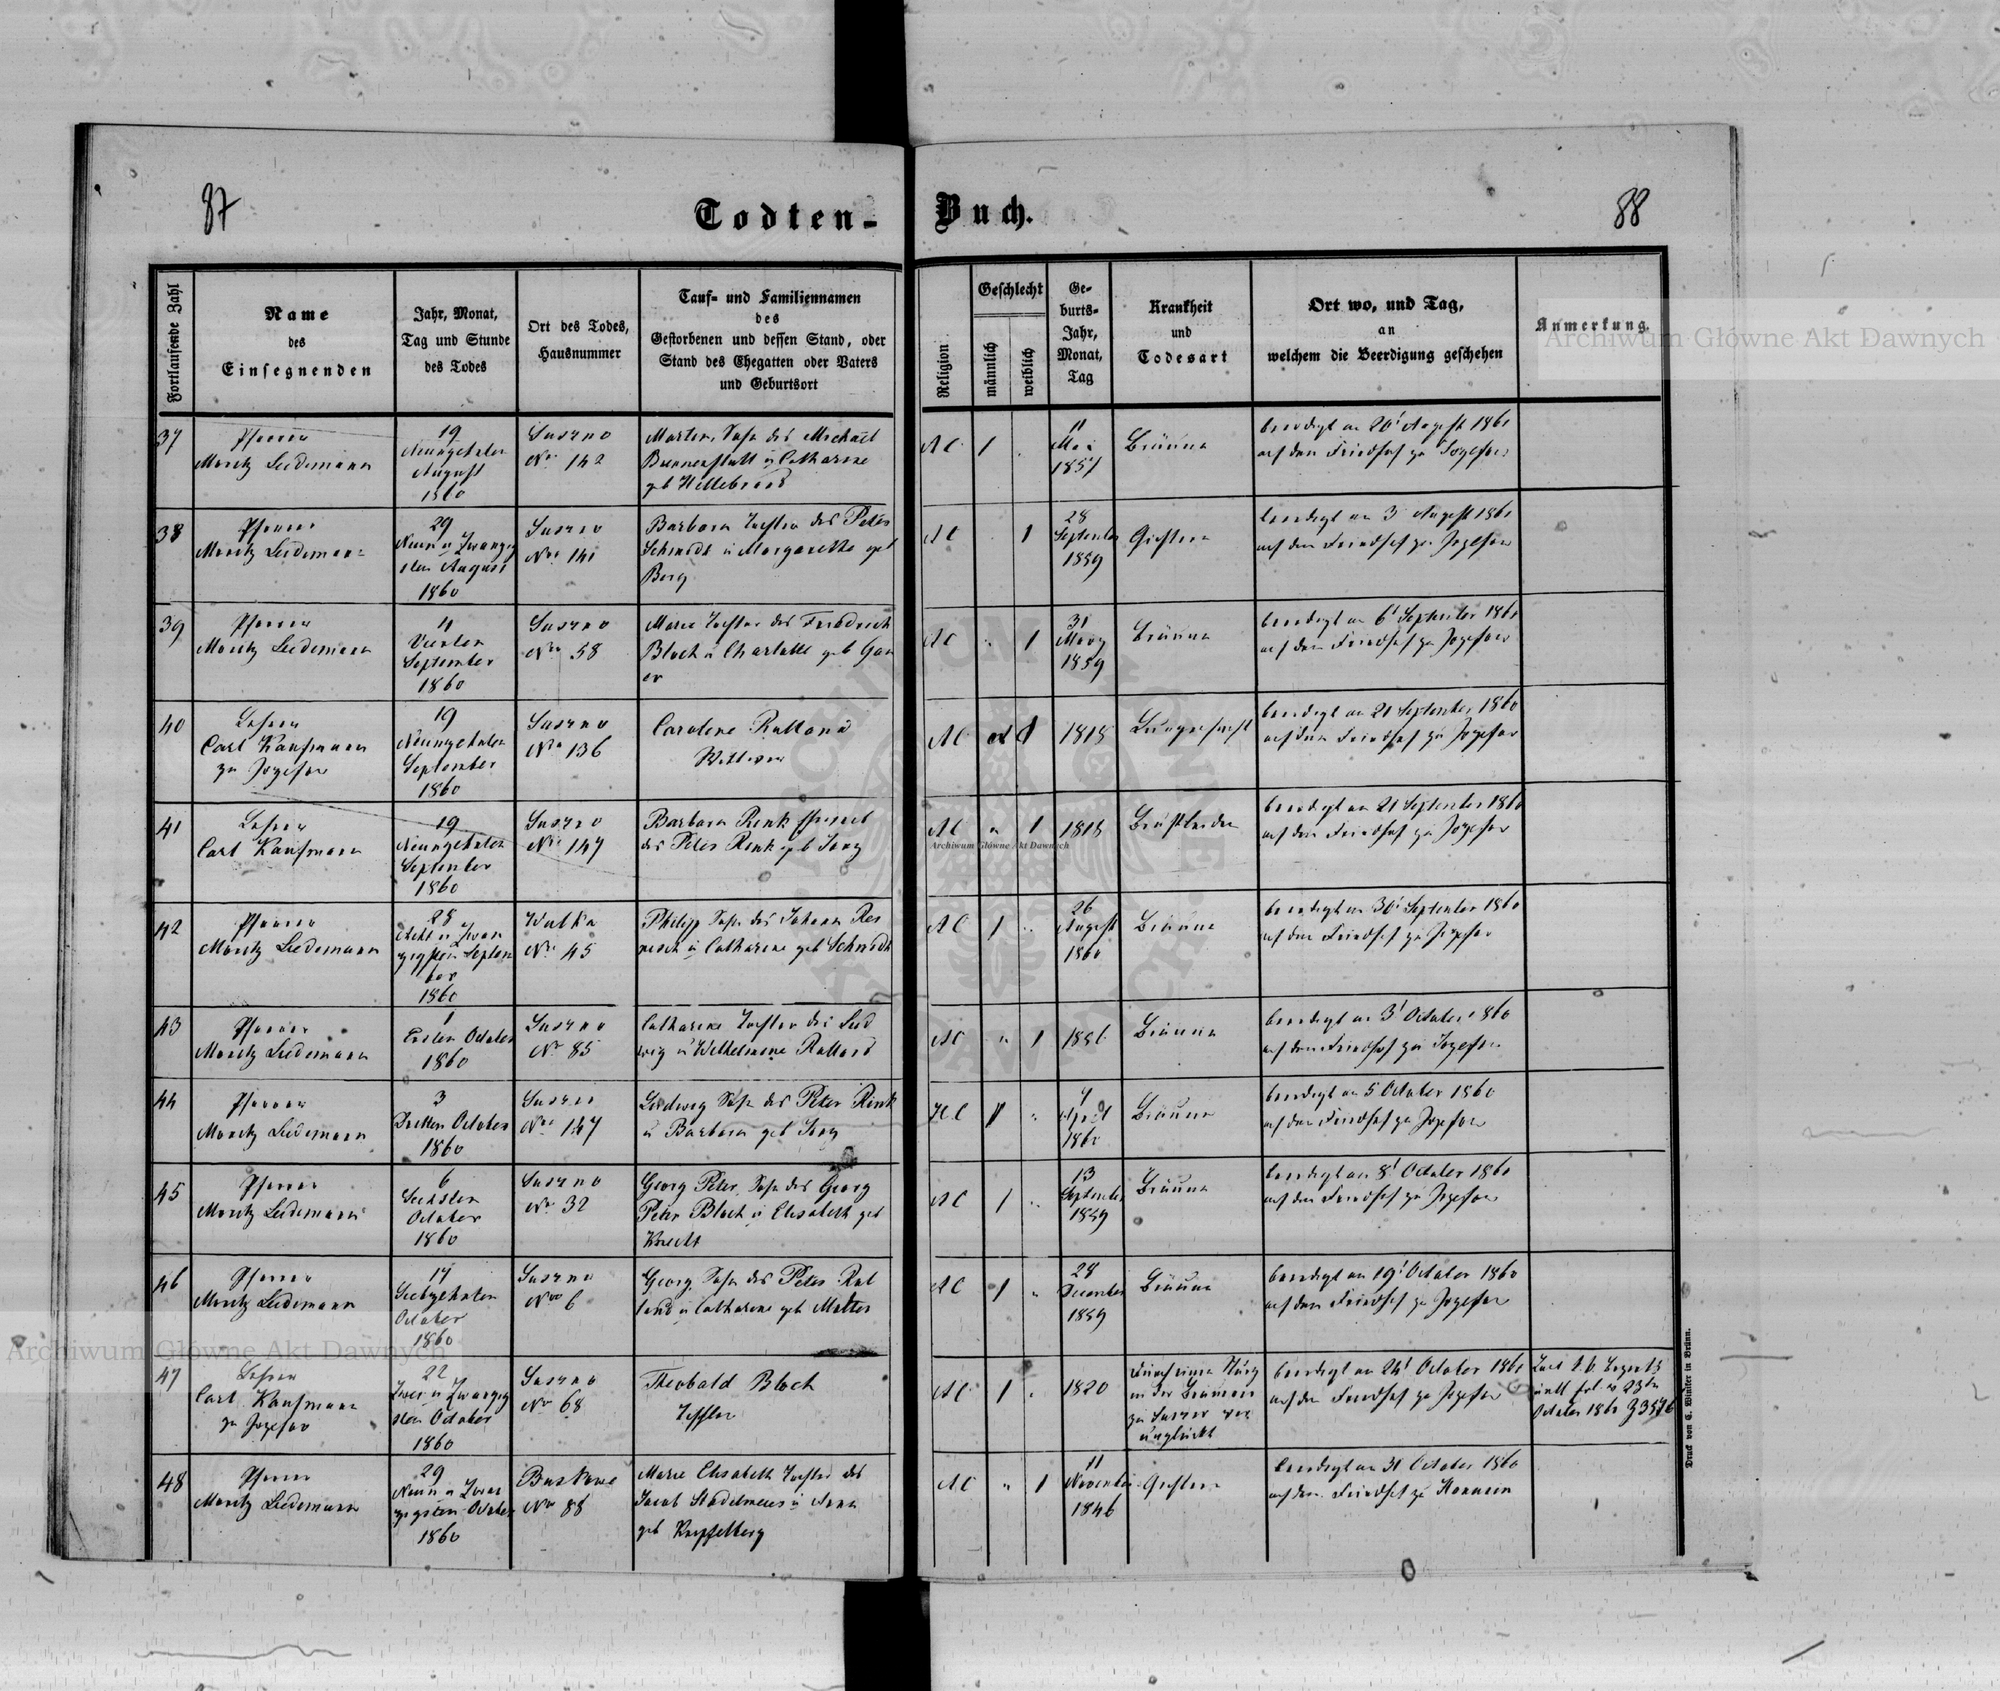 87
Todten-
Buch.
88
Fortlaufende Zahl
Name
des
Einsegnenden
Jahr, Monat,
Tag und Stunde
des Todes
Ort des Todes,
Hausnummer
Tauf- und Familiennamen
des
Gestorbenen und dessen Stand, oder
Stand des Ehegatten oder Vaters
und Geburtsort
Religion
Geschlecht
männlich
weiblich
Ge-
burts-
Jahr,
Monat,
Tag
Krankheit
und
Todesart
Ort wo, und Tag,
an
welchem die Beerdigung geschehen
Anmerkung.
Archiwum Główne Akt Dawnych
37
Pfarrer
Moritz Lüdemann
19
Neunzehnten
August
1860
Suszno
Nro 142
Martin, Sohn des Michael
ü Catharine
geb Hillebrand
AC
1
11
Mai
1857
Bräune
beerdigt am 20t August 1860
auf dem Friedhof zu Jozefow
38
Pfarrer
Moritz Lüdemann
29
Neun u Zwanzig
sten August
1860
Suszno
Nro 141
Barbara Tochter des Peter
Schmidt ü Margarethe geb
Berg
AC
1
28
September
1859
beerdigt am 3 August 1860
auf dem Friedhof zu Jozefow
39
Pfarrer
Moritz Lüdemann
4
Vierten
September
1860
Suszno
Nro 58
Marie Tochter des Friedrich
Bloch ü Charlotte geb Gau
er
AC
1
31
März
1859
Bräune
beerdigt am 6t September 1860
auf dem Friedhof zu Jozefow
40
Lehrer
Carl Kaufmann
zu Jozefow
19
Neunzehnten
September
1860
Suszno
Nro 136
Caroline Rulland
Wittwe
AC
1
1818
Lungensucht
beerdigt am 21 September 1860
auf dem Friedhof zu Jozefow
41
Lehrer
Carl Kaufmann
19
Neunzehnten
September
1860
Suszno
Nro 147
Barbara Rink Eheweib
des Peter Rink geb Jung
AC
1
1818
Brustleiden
beerdigt am 21 September 1860
auf dem Friedhof zu Jozefow
Archiwum Główne Akt Dawnych
42
Pfarrer
Moritz Lüdemann
28
Acht u Zwan
zigsten Septem
ber
1860
Wulka
Nro 45
Philipp Sohn des Johann Res
ü Catharine geb Schmidt
AC
1
26
August
1860
Bräune
beerdigt am 30t September 1860
auf dem Friedhof zu Jozefow
43
Pfarrer
Moritz Lüdemann
1
Ersten October
1860
Suszno
Nro 85
Catharine Tochter des Lud
wig ü Wilhelmine Rulland
AC
1
1856
Bräune
beerdigt am 3t October 1860
auf dem Friedhof zu Jozefow
44
Pfarrer
Moritz Lüdemann
3
Dritten October
1860
Suszno
Nro 147
Ludwig Sohn des Peter Rink
ü Barbara geb Jung
HC
1
4
April
1860
Bräune
beerdigt am 5 October 1860
auf dem Friedhof zu Jozefow
45
Pfarrer
Moritz Lüdemann
6
Sechsten
October
1860
Suszno
Nro 32
Georg Peter, Sohn des Georg
Peter Bloch ü Elisabeth geb
Knecht
AC
1
13
September
1859
Bräune
beerdigt am 8t October 1860
auf dem Friedhof zu Jozefow
46
Pfarrer
Moritz Lüdemann
17
Siebzehnten
October
1860
Suszno
Nro 6
Georg, Sohn des Peter Rul
land ü Catharine geb Mattes
AC
1
28
December
1859
Bräune
beerdigt am 19t October 1860
auf dem Friedhof zu Jozefow
Archiwum Główne Akt Dawnych
47
Lehrer
Carl Kaufmann
zu Jozefow
22
Zwei u Zwanzig
sten October
1860
Suszno
Nro 68
Theobald Bloch
AC
1
1820
in der
zu Suszno ver
unglückt
beerdigt am 24t October 1860
auf dem Friedhof zu Jozefow
October 1860
48
Pfarrer
Moritz Lüdemann
29
Neun u Zwan
zigsten October
1860
Nro 88
Marie Elisabeth Tochter des
Jacob Stadelmeier ü Anna
geb
AC
1
11
November
1846
beerdigt am 31 October 1860
auf dem Friedhof zu
Druck von C. Winiker in Brünn.